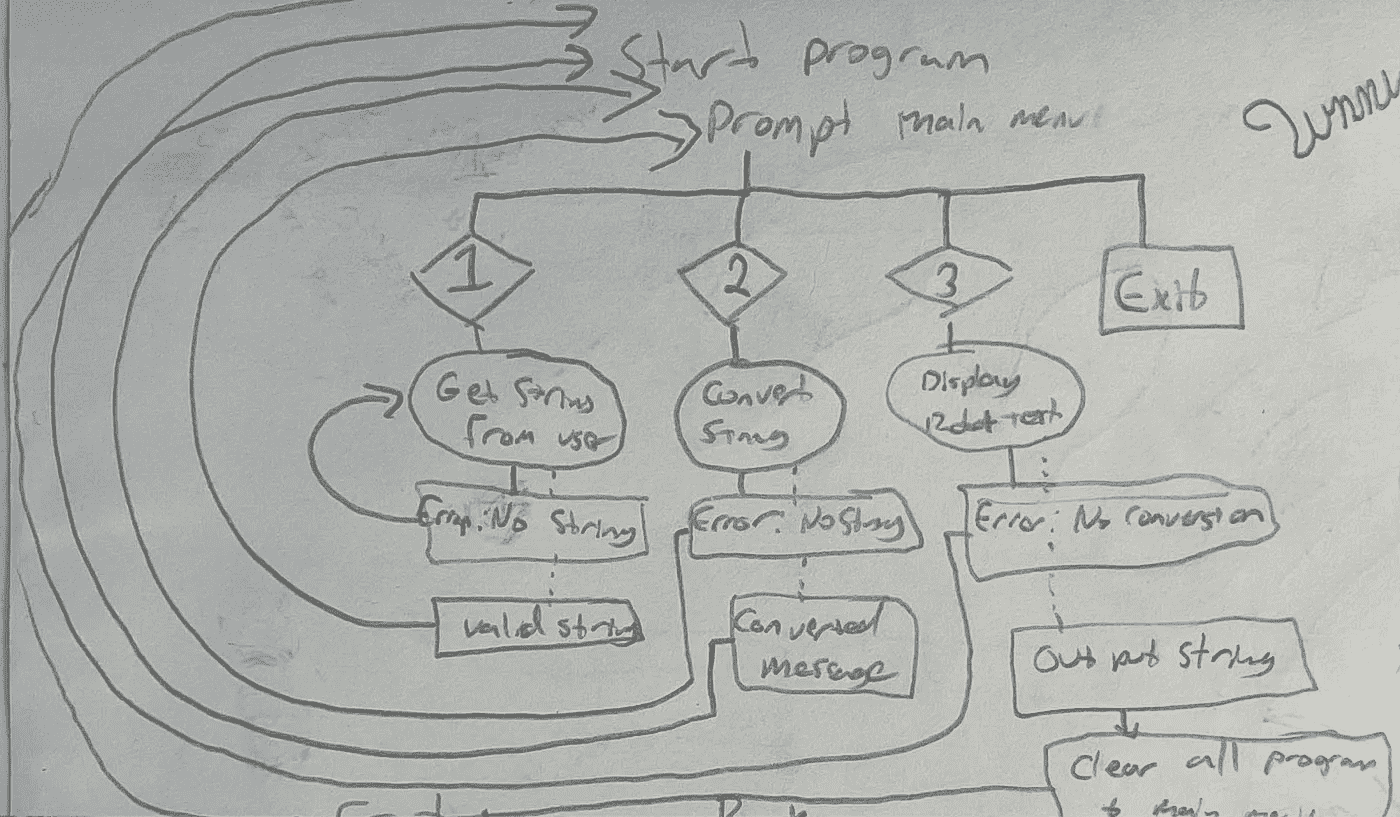 Start program
Prompt main menu
1
2
3
Exit
Get String
from user
Convert
String
Display
12dot text
Error: No String
Error: No String
Error: No conversion
valid string
Converted
message
Output string
Clear all program
to main menu